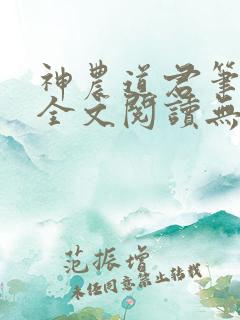 神農道君筆
全文閱讀無
范振增
未经同意禁止转载